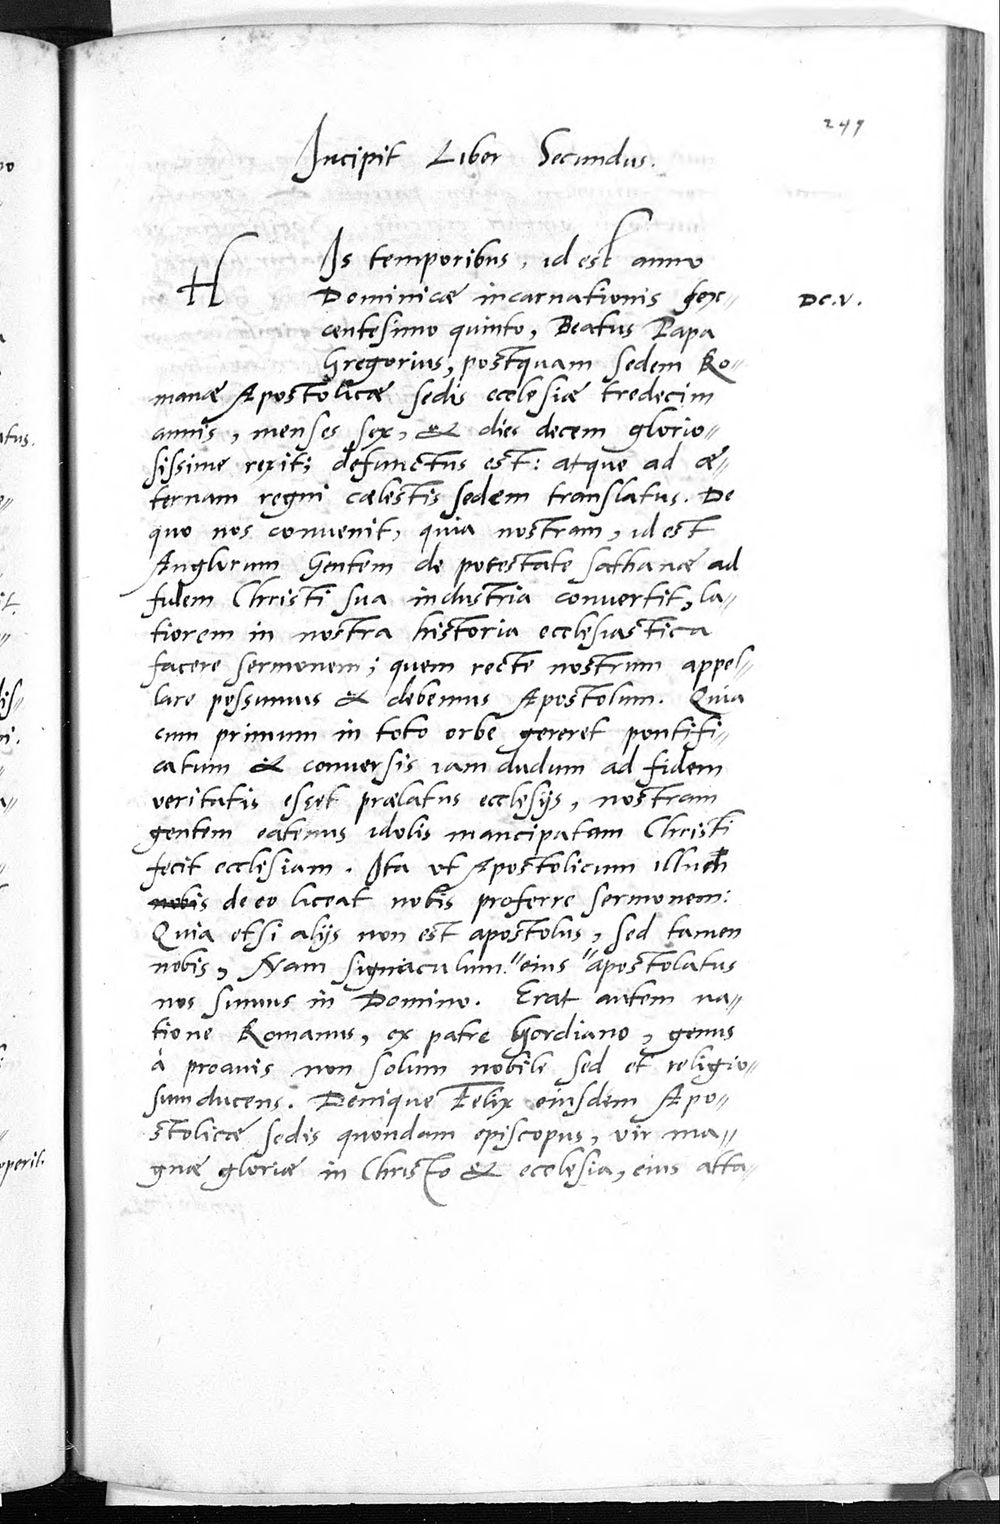 249
Incipit Liber Secundus.
HIs temporibus, id est anno
Dominicæ incarnationis sex-
centesimo quinto, Beatus Papa
DC.V.
Gregorius, postquam sedem Ro-
manæ Apostolicæ sedis ecclesiæ tredecim
annis, menses sex, & dies decem glorio-
sissime rexit; defunctus est: atque ad æ-
ternam regni cælestis sedem translatus. De
quo nos convenit, quia nostram, id est
Anglorum Gentem de potestate sathanæ ad
fidem Christi sua industria convertit, la-
tiorem in nostra historia ecclesiastica
facere sermonem; quem recte nostrum appel-
lare possumus & debemus Apostolum. Quia
cum primum in toto orbe gereret pontifi-
catum & conversis iam dudum ad fidem
veritatis esset prælatus ecclesijs, nostram
gentem eatenus idolis mancipatam Christi
fecit ecclesiam. Ita ut Apostolicum illum
nobis de eo liceat nobis proferre sermonem:
Quia etsi alijs non est apostolus, sed tamen
nobis, Nam signaculum "eius "apostolatus
nos sumus in Domino. Erat autem na-
tione Romanus, ex patre Gordiano, genus
à proavis non solum nobile sed et religio-
sum ducens. Denique Felix eiusdem Apo-
stolicæ sedis quondam episcopus, vir ma-
gnæ gloriæ in Christo & ecclesia, eius atta-